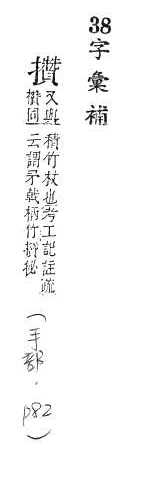 38
字彙補
攢 又與積竹杖也考工記註疏
欑同云謂矛戟柄竹欑柲
(手部.p82)